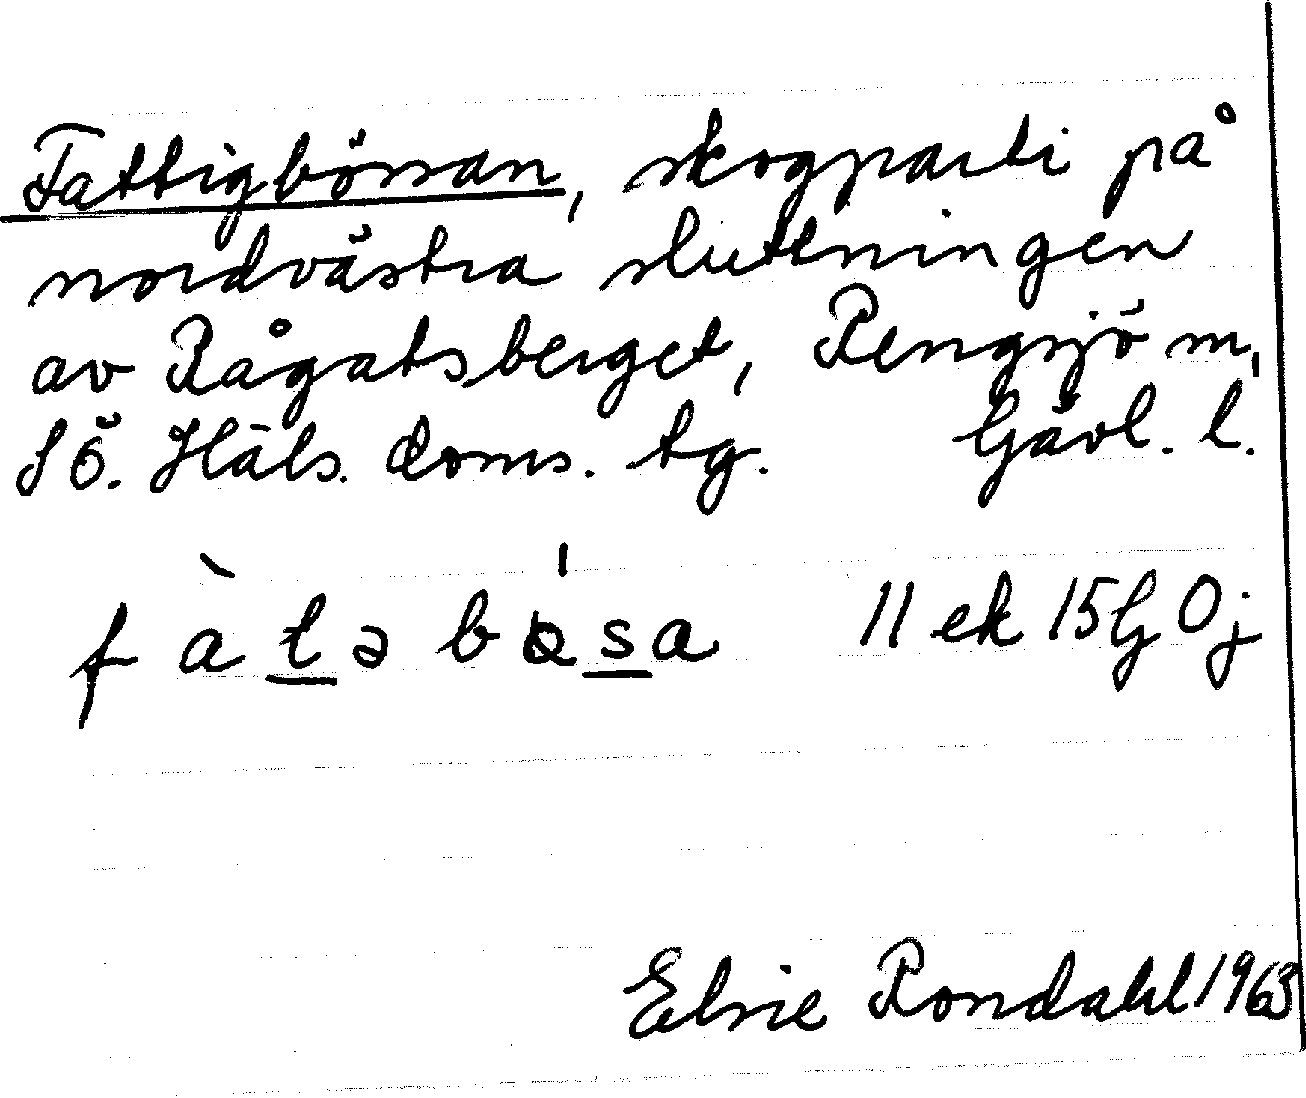 Fattigbörsan, skogparti på
nordvästra sluttningen
av Rågatsberget, Rengsjö m,
SÖ. Häls. doms. tg. Gävl. l.
fàtə bɵ́sa 11 ek 15G Oj
Elsie Rondahl 1963